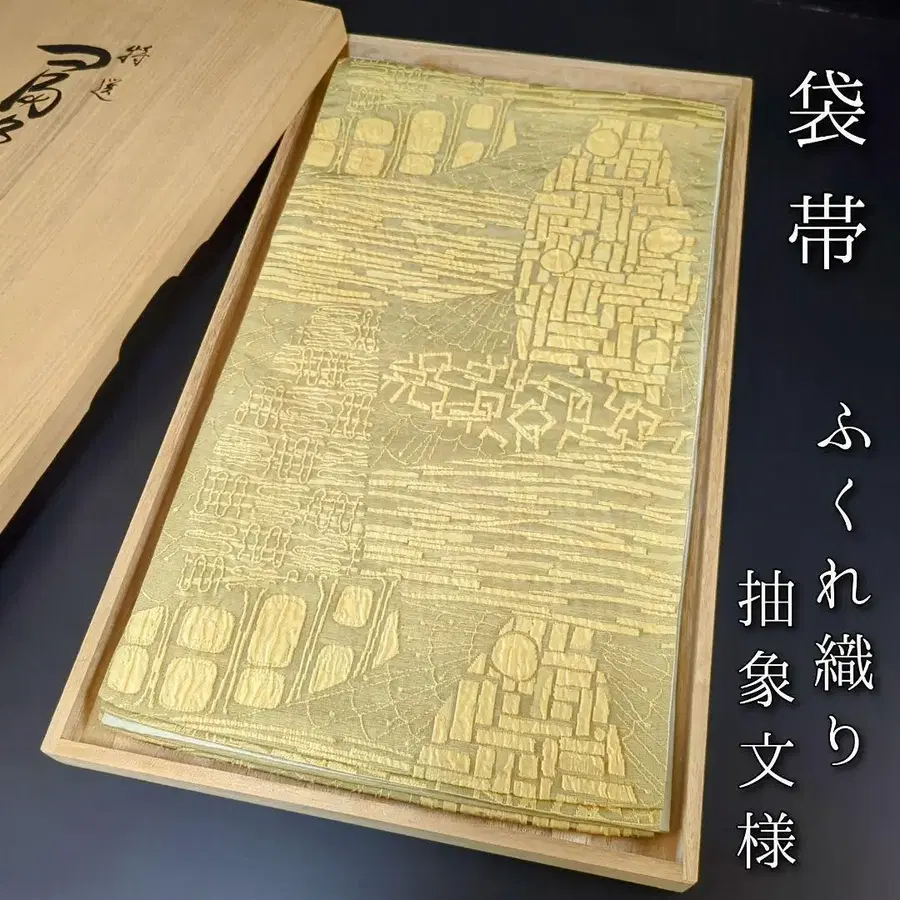 袋帯
ふくれ織り
抽象文様
特選